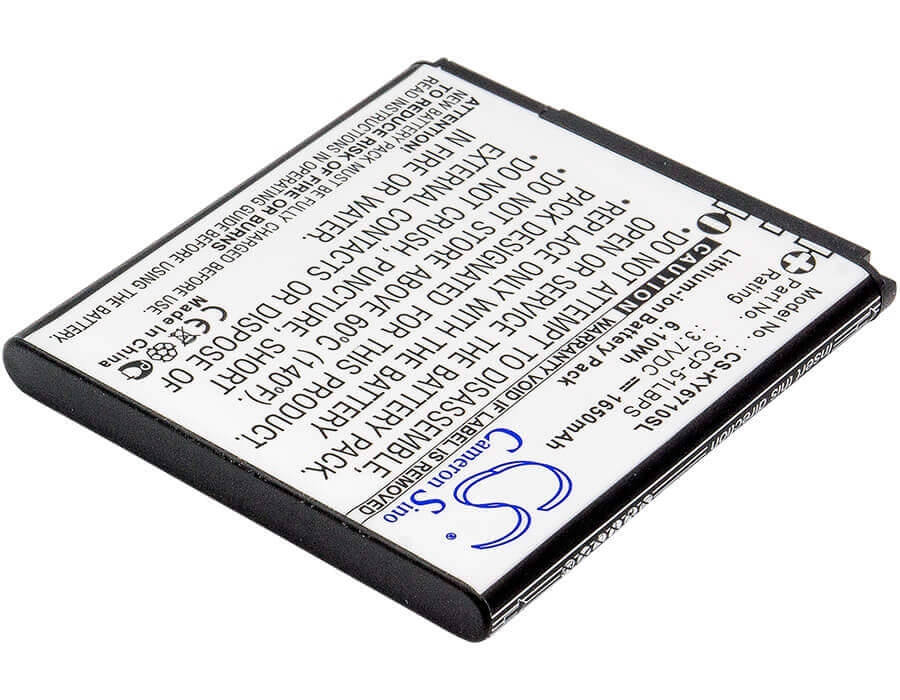 Model No. : CS-KY6710SL
Part No. : SCP-51LBPS
Rating : 3.7VDC 1650mAh
6.10Wh
Lithium-ion Battery Pack
CAUTION
WARRANTY VOID IF LABEL IS REMOVED
•DO NOT ATTEMPT TO DISASSEMBLE,
OPEN OR SERVICE THE BATTERY PACK
•REPLACE ONLY WITH THE BATTERY
PACK DESIGNATED FOR THIS PRODUCT
•DO NOT STORE ABOVE 60°C (140°F)
•DO NOT CRUSH, PUNCTURE, SHORT
EXTERNAL CONTACTS OR DISPOSE OF
IN FIRE OR WATER.
ATTENTION!
NEW BATTERY PACK MUST BE FULLY CHARGED BEFORE USE.
TO REDUCE RISK OF FIRE OR BURNS
READ INSTRUCTIONS IN OPERATING GUIDE BEFORE USING THE BATTERY.
CE
Made in China
CS
Cameron Sino